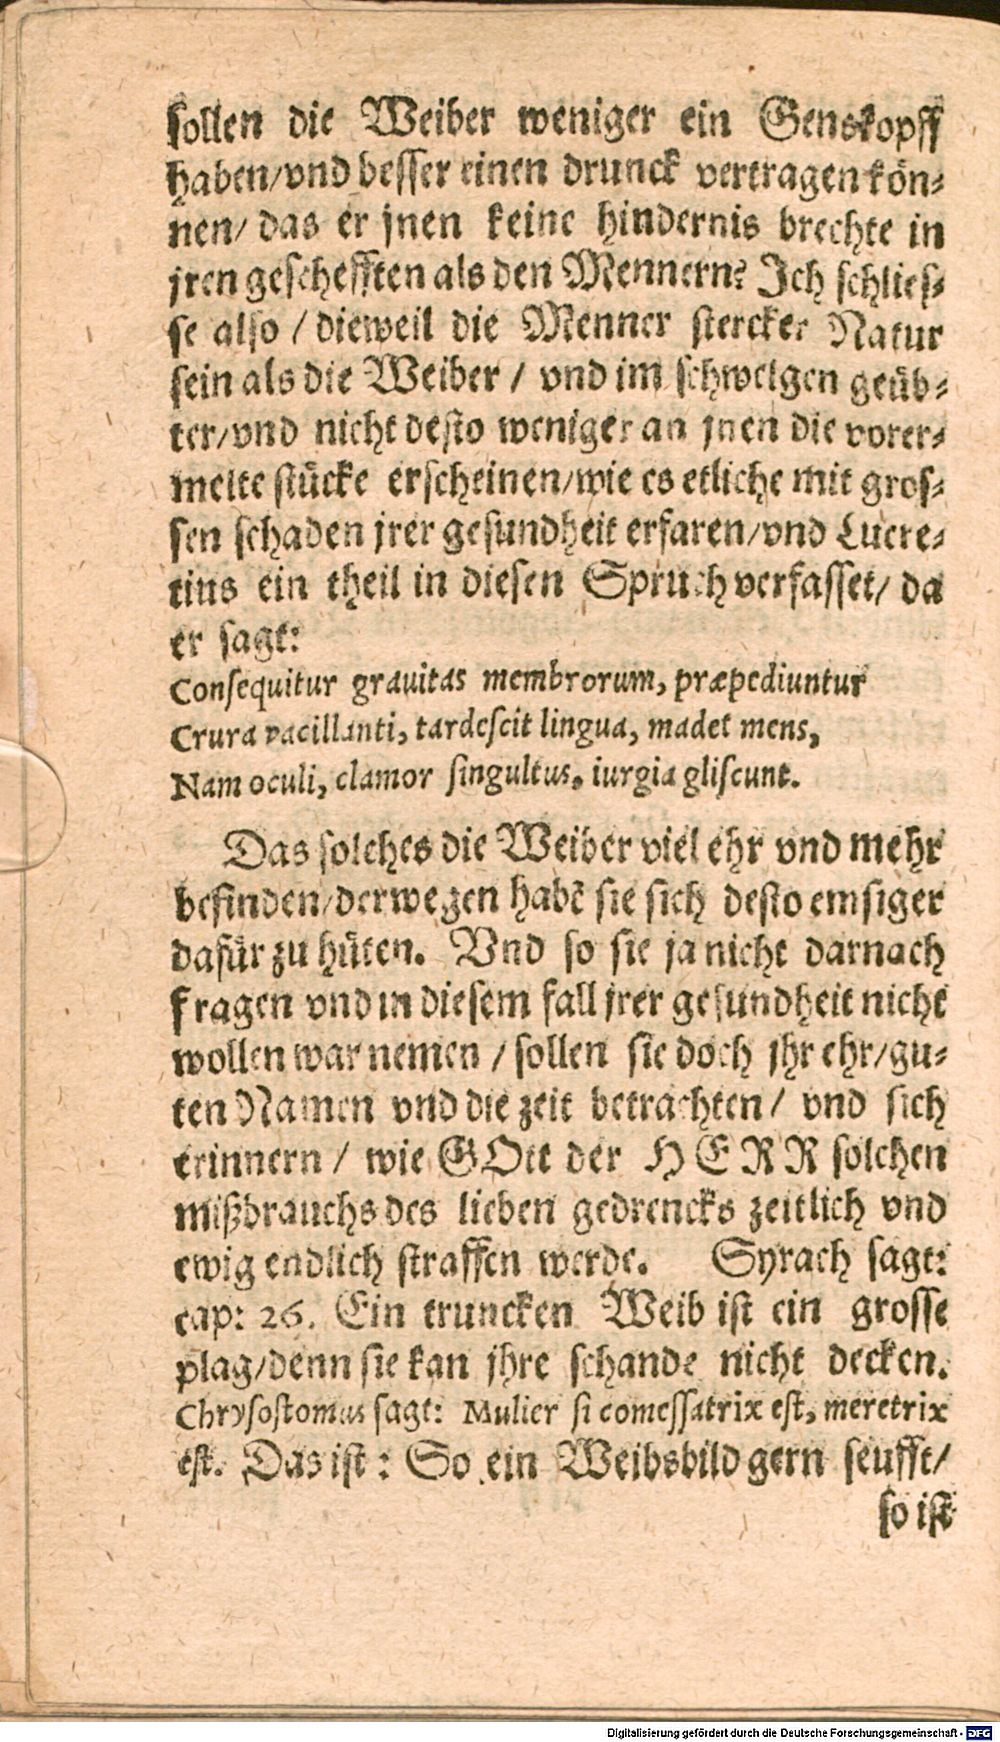 sollen die Weiber weniger ein Genskopff
haben/vnd besser einen drunck vertragen kön⸗
nen/ das er jnen keine hindernis brechte in
jren geschefften als den Mennern? Ich schlies⸗
se also / dieweil die Menner stercker Natur
sein als die Weiber / vnd im schwelgen geüb⸗
ter/vnd nicht desto weniger an jnen die vorer⸗
melte stücke erscheinen/wie es etliche mit gros⸗
sen schaden jrer gesundheit erfaren/vnd Lucre⸗
tius ein theil in diesen Spruch verfasset/ da
er sagt:
Consequitur grauitas membrorum, præpediuntur
Crura vacillanti, tardescit lingua, madet mens,
Nam oculi, clamor singultus, iurgia gliscunt.
Das solches die Weiber viel ehr vnd mehr
befinden/derwegen habē sie sich desto emsiger
dafür zu hüten. Vnd so sie ja nicht darnach
fragen vnd in diesem fall jrer gesundheit nicht
wollen war nemen / sollen sie doch jhr ehr/gu⸗
ten Namen vnd die zeit betrachten/ vnd sich
erinnern / wie GOtt der HERR solchen
mißbrauchs des lieben gedrencks zeitlich vnd
ewig endlich straffen werde. Syrach sagt:
cap: 26. Ein truncken Weib ist ein grosse
plag/denn sie kan jhre schande nicht decken.
Chrysostomus sagt: Mulier si comessatrix est, meretrix
est. Das ist : So ein Weibsbild gern seufft/
so ist
Digitalisierung gefördert durch die Deutsche Forschungsgemeinschaft - DFG